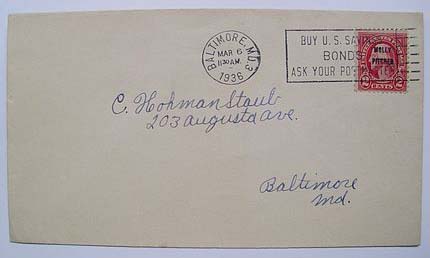 BALTIMORE, MD. 3
MAR 6
11 30 AM
1936
BUY U.S. SAVINGS
BONDS
ASK YOUR POSTMASTER
MOLLY
PITCHER
2 CENTS 2
C. Hohman Staub
203 augusta ave.
Baltimore
Md.